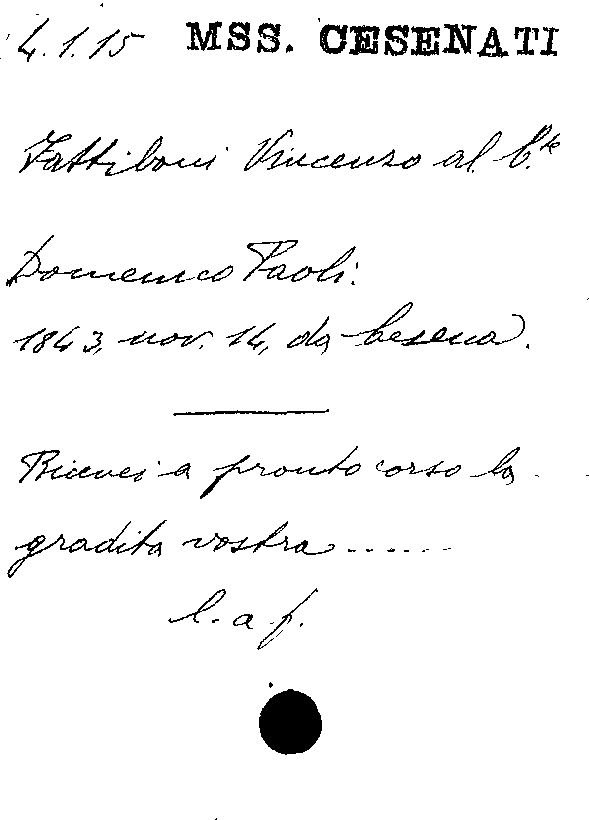 4.1.15 MSS. CESENATI
Fattiboni Vincenzo al C.te
Domenico Paoli.
1843, nov. 14, da Cesena.
Ricevei a pronto corso la
gradita vostra ......
l. a f.